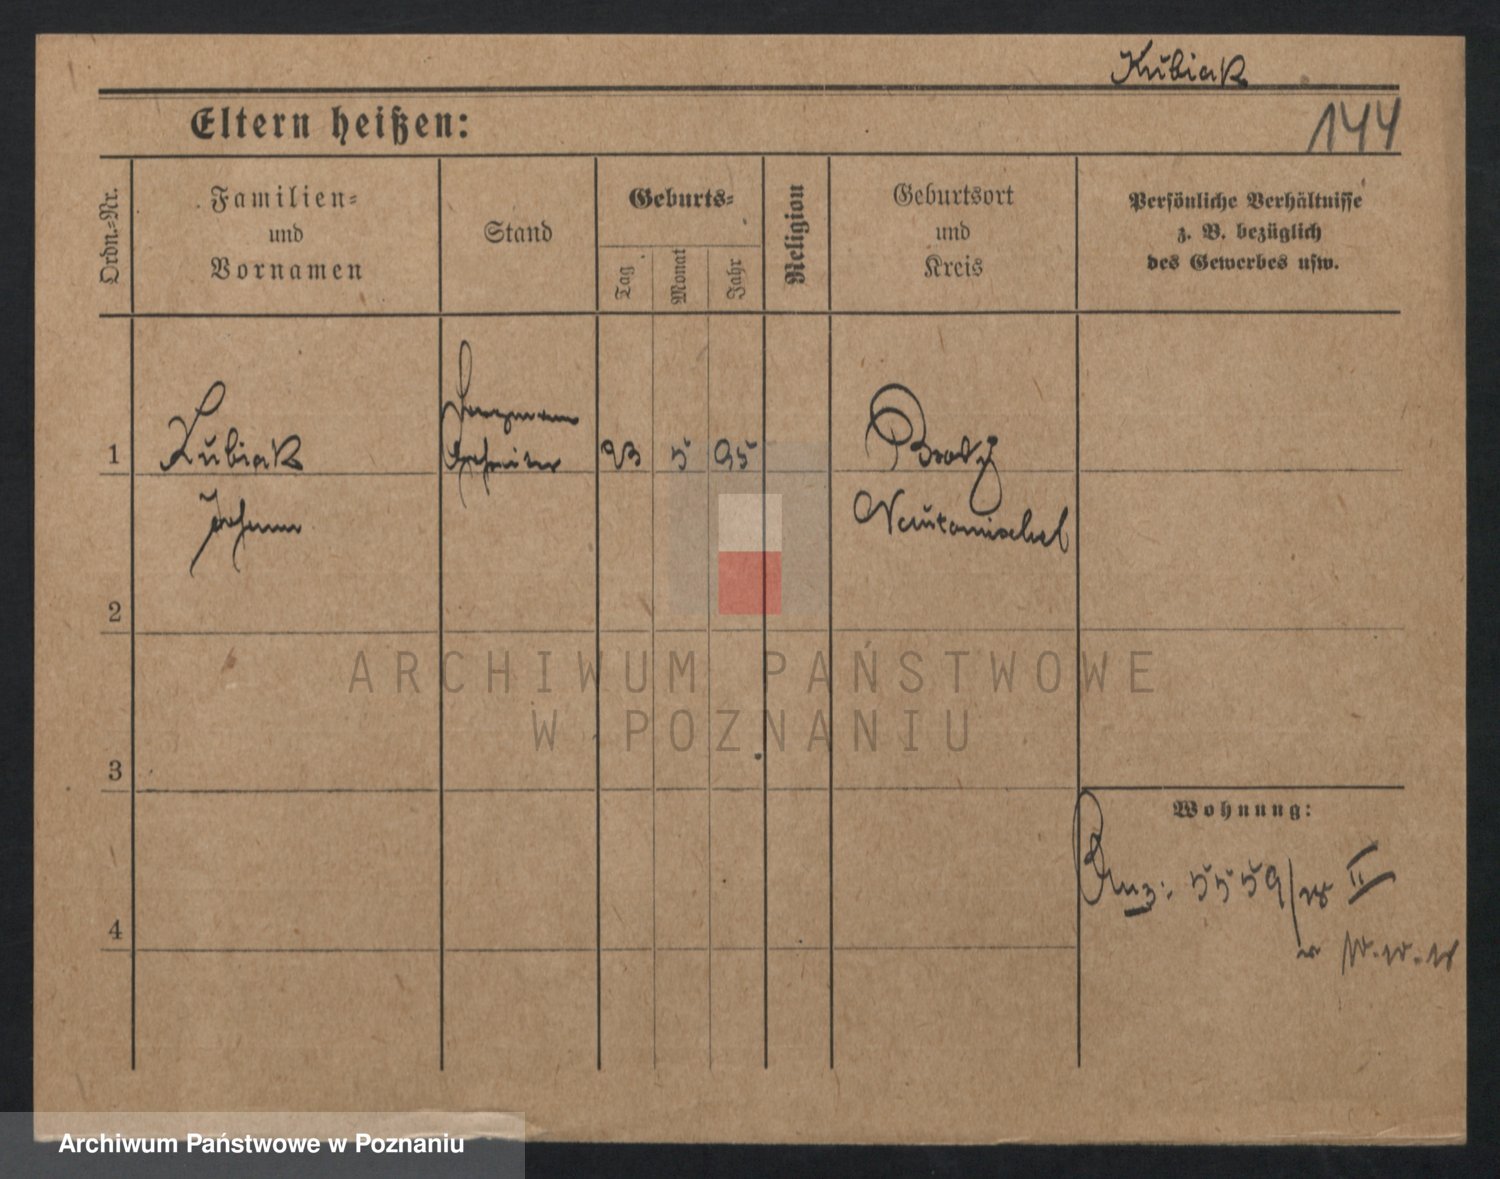 Kubiak
Eltern heißen:
144
Ordn.-Nr.
Familien-
und
Vornamen
Stand
Geburts-
Tag
Monat
Jahr
Religion
Geburtsort
und
Kreis
Persönliche Verhältnisse
z. B. bezüglich
des Gewerbes usw.
1
Kubiak
23 5 95
Brody
Johann
Neutomischel
2
ARCHIWUM PAŃSTWOWE
W POZNANIU
3
Wohnung:
5559/
II
4
Archiwum Państwowe w Poznaniu